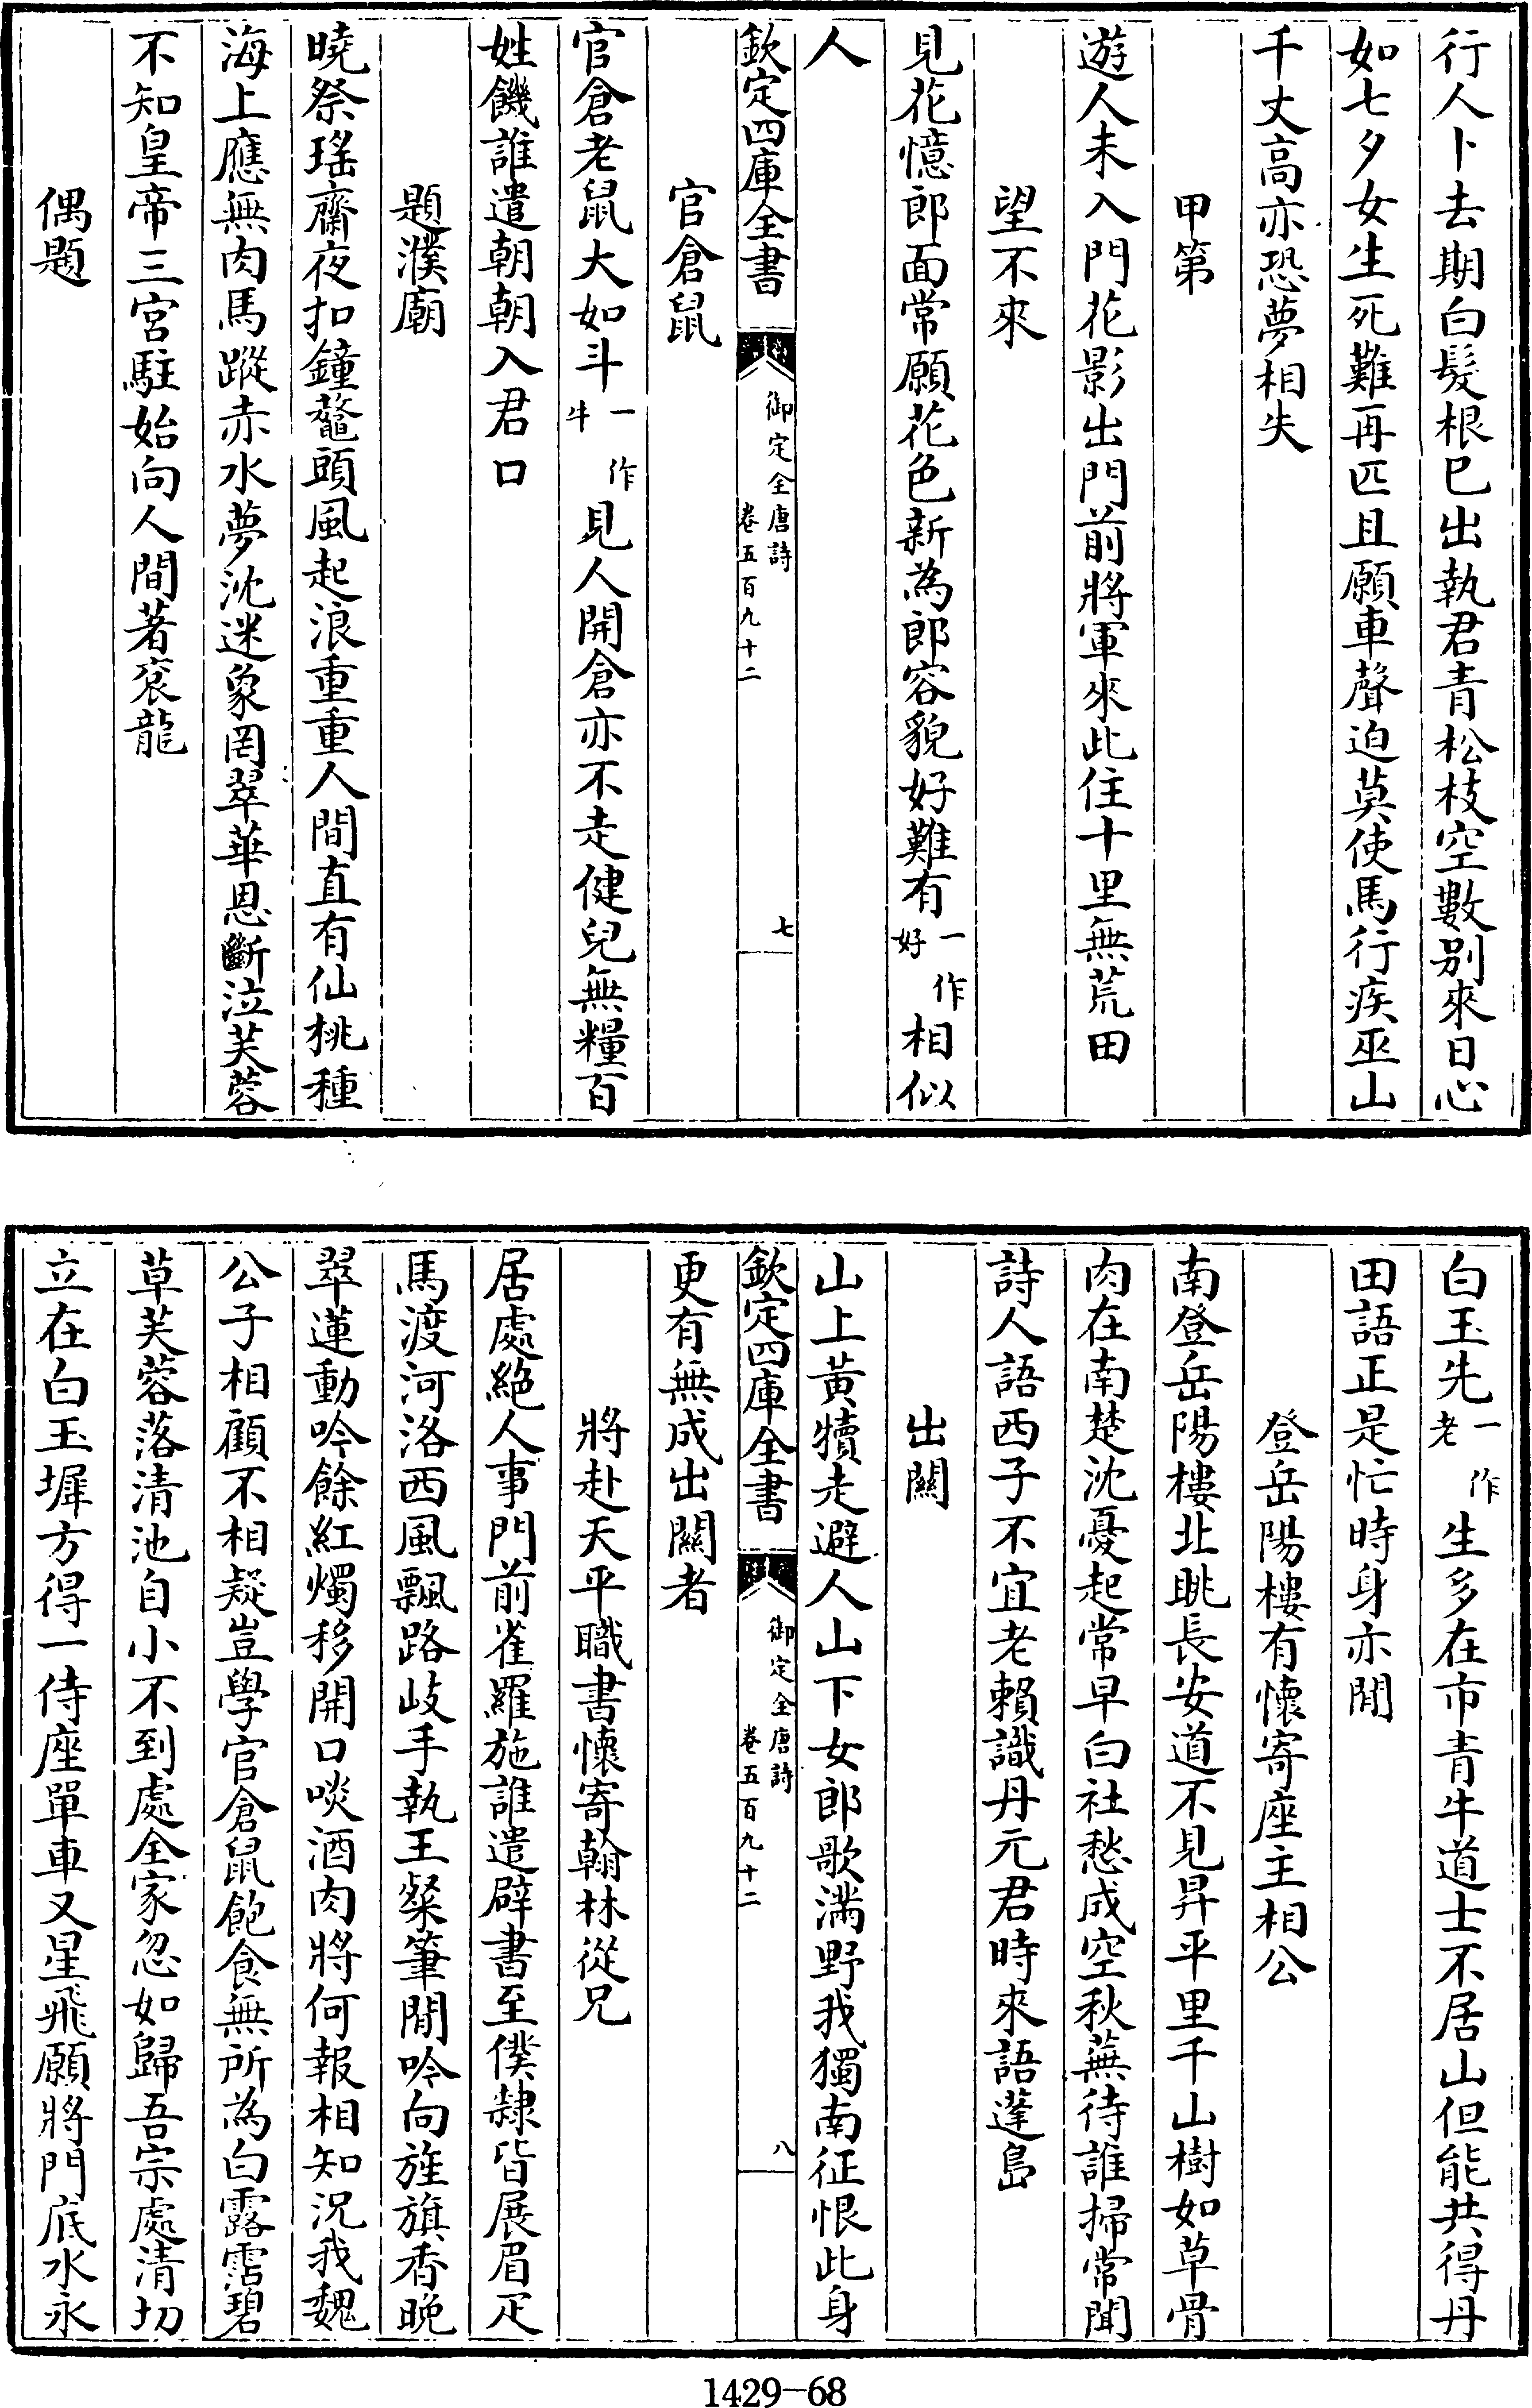 行人卜去期白髮根已出執君青松枝空數别來日心
如七夕女生死難再匹且願車聲迫莫使馬行疾巫山
千丈高亦恐夢相失
甲第
遊人未入門花影出門前將軍來此住十里無荒田
望不來
見花憶郎面常願花色新為郎容貌好難有一作好相似
人
欽定四庫全書
御定全唐詩
卷五百九十二
七
官倉鼠
官倉老鼠大如斗一作牛見人開倉亦不走健兒無糧百
姓饑誰遣朝朝入君口
題濮廟
曉祭瑤齋夜扣鐘鼇頭風起浪重重人間直有仙桃種
海上應無肉馬蹤赤水夢沈迷象罔翠華恩斷泣芙蓉
不知皇帝三宮駐始向人間著衮龍
偶題
白玉先一作老生多在市青牛道士不居山但能共得丹
田語正是忙時身亦閒
登岳陽樓有懷寄座主相公
南登岳陽樓北眺長安道不見昇平里千山樹如草骨
肉在南楚沈憂起常早白社愁成空秋蕪待誰掃常聞
詩人語西子不宜老賴識丹元君時來語蓬島
出關
山上黃犢走避人山下女郎歌滿野我獨南征恨此身
欽定四庫全書
御定全唐詩
卷五百九十二
八
更有無成出關者
將赴天平職書懷寄翰林從兄
居處絶人事門前雀羅施誰遣辟書至僕隸皆展眉疋
馬渡河洛西風飄路岐手執王粲筆閒吟向旌旗香晚
翠蓮動吟餘紅燭移開口啖酒肉將何報相知況我魏
公子相顧不相疑豈學官倉鼠飽食無所為白露霑碧
草芙蓉落清池自小不到處全家忽如歸吾宗處清切
立在白玉墀方得一侍座單車又星飛願將門底水永
1429-68